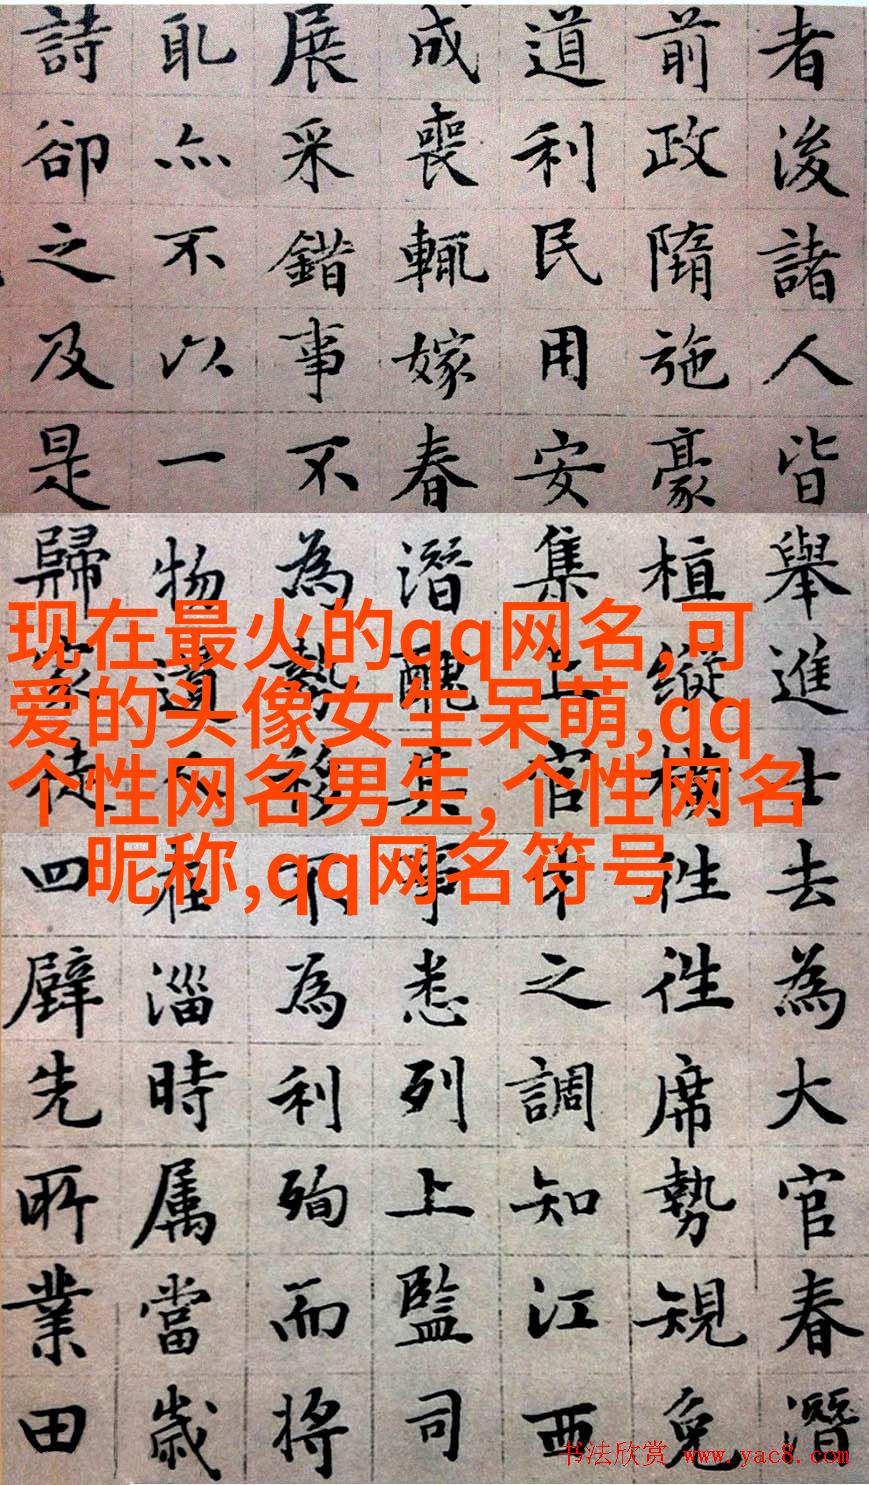 者後諸人皆舉進士去為大官春潛
前政隋施豪植縱橫往往席勢規免
道利民用安集上官之調知江西
成喪輒嫁春潛醜其事悉列上監司
展采錯事不為勢移不為利殉而將
耴亦不以一物遺人在淄時属當歲
詩卻之及是歸家徒四壁先所業田
现在最火的qq网名,可
爱的头像女生呆萌,qq
个性网名男生,个性网名
昵称,qq网名符号
书法欣赏 www.yac8.com